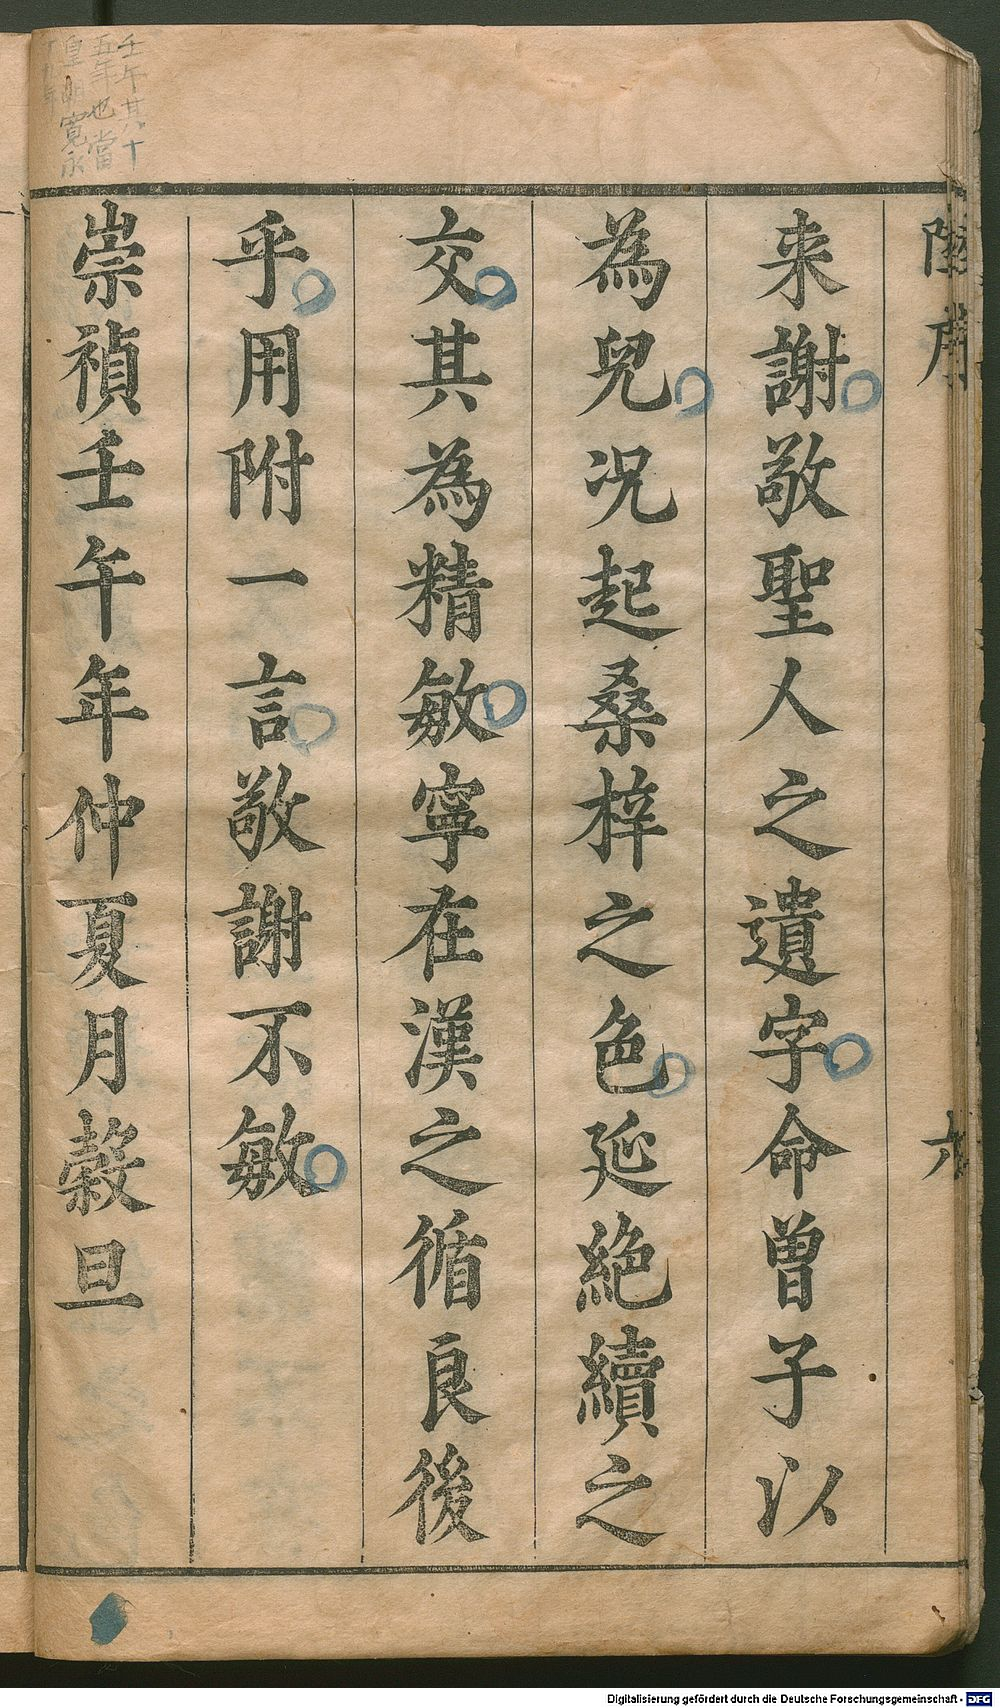 陸序
六
来謝敬聖人之遺字命曾子以
為皃况起桑梓之色延絶續之
交其為精敏寧在漢之循良後
乎用附一言敬謝不敏
崇禎壬午年仲夏月穀旦
壬午其十
五年也當
皇朝寛永
Digitalisierung gefördert durch die Deutsche Forschungsgemeinschaft - DFG